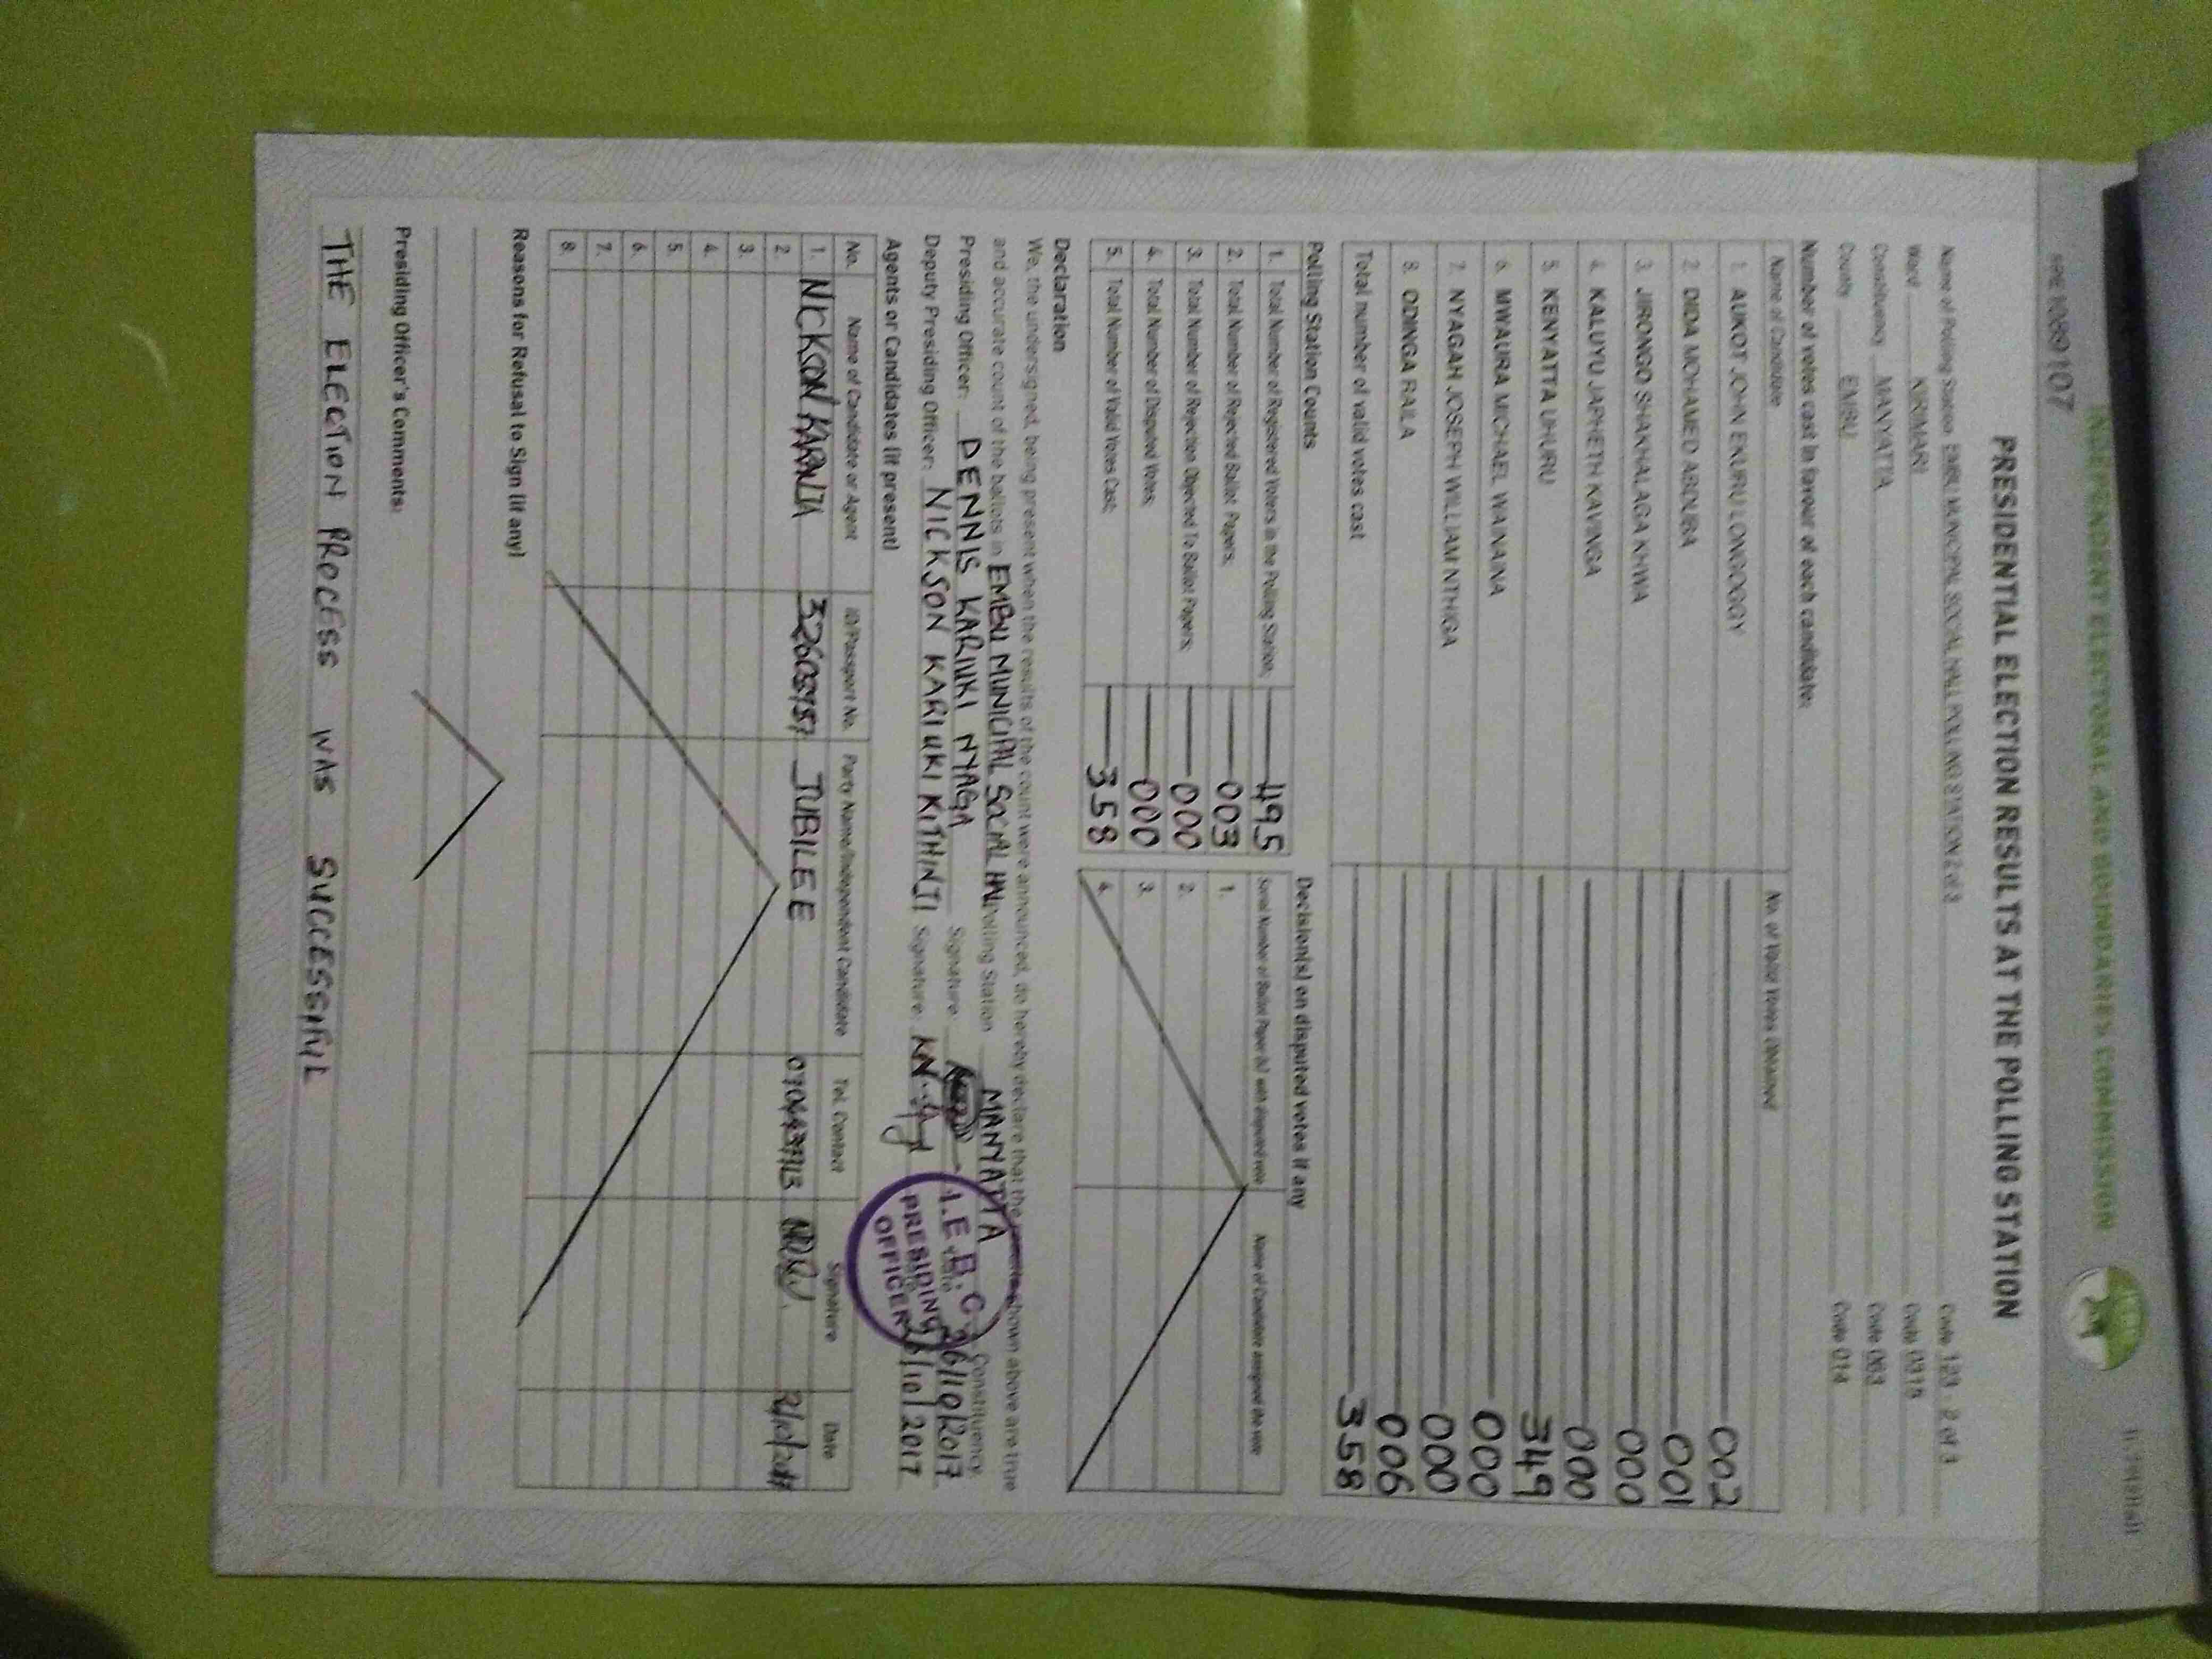 INDEPENDENT ELECTORAL AND BOUNDARIES COMMISSION
PRESIDENTIAL ELECTION RESULTS AT THE POLLING STATION
Name of Polling Station EMBU MUNICIPAL SOCIAL HALL POLLING STATION 2 of 3 Code 123 - 2 of 3
Ward KIRIMARI Code 0315
Constituency MANYATTA Code 063
County EMBU Code 014
Number of votes cast in favour of each candidate:
Name of Candidate No. of Valid Votes Obtained
1. AUKOT JOHN EKURU LONGOGGY 002
2. DIDA MOHAMED ABDUBA 001
3. JIRONGO SHAKHALAGA KHWA 000
4. KALUYU JAPHETH KAVINGA 000
5. KENYATTA UHURU 349
6. MWAURA MICHAEL WAINAINA 000
7. NYAGAH JOSEPH WILLIAM NTHIGA 000
8. ODINGA RAILA 006
Total number of valid votes cast 358
Polling Station Counts
1. Total Number of Registered Voters in the Polling Station; 495
2. Total Number of Rejected Ballot Papers; 003
3. Total Number of Rejection Objected To Ballot Papers; 000
4. Total Number of Disputed Votes; 000
5. Total Number of Valid Votes Cast; 358
Decision(s) on disputed votes if any
Serial Number of Ballot Paper (s) with disputed vote Name of Candidate assigned the vote
1.
2.
3.
4.
Declaration
We, the undersigned, being present when the results of the count were announced, do hereby declare that the results shown above are true
and accurate count of the ballots in EMBU MUNICIPAL SOCIAL HALL Polling Station MANYATTA Constituency.
Presiding Officer: DENNIS KARIUKI NYAGA Signature: 26/10/2017
Deputy Presiding Officer: NICKSON KARIUKI KITHINJI Signature: 26/10/2017
I.E.B.C.
PRESIDING
OFFICER
Agents or Candidates (if present)
No. Name of Candidate or Agent ID/Passport No. Party Name/Independent Candidate Tel. Contact Signature Date
1. NICKSON KARANJA JUBILEE
2.
3.
4.
5.
6.
7.
8.
Reasons for Refusal to Sign (if any)
Presiding Officer's Comments:
THE ELECTION PROCESS WAS SUCCESSFUL